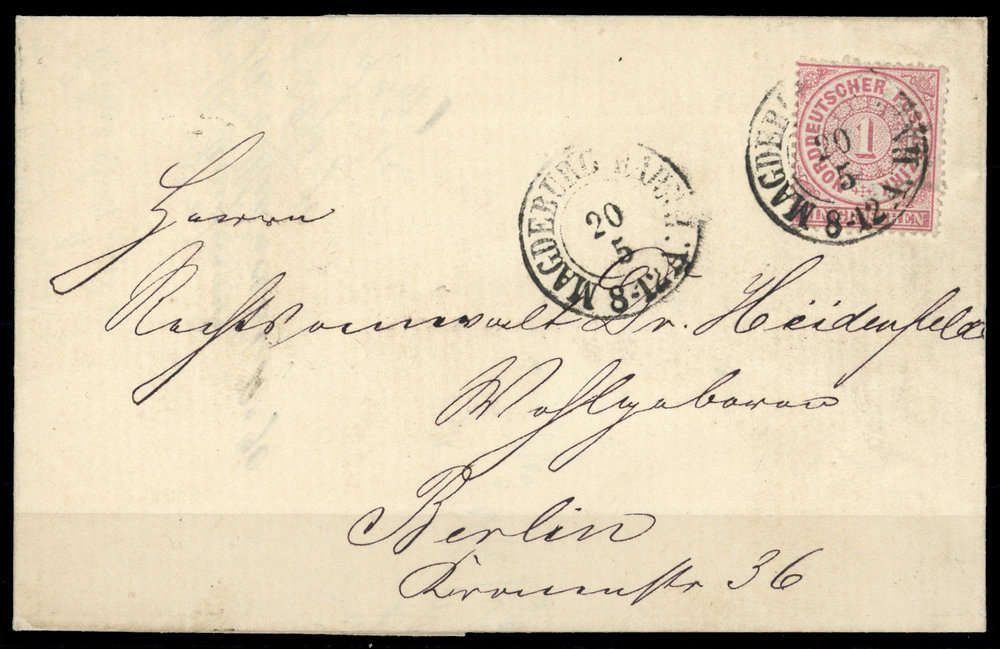 NORDDEUTSCHER POSTBEZIRK
1
MAGDEBURG BAHNH.
20
5
8-12 V.
MAGDEBURG BAHNH.
20
5
8-12 V.
Herrn
Rechtsanwalt Dr. Heidenfeld
Wohlgeboren
Berlin
Kronenstr 36